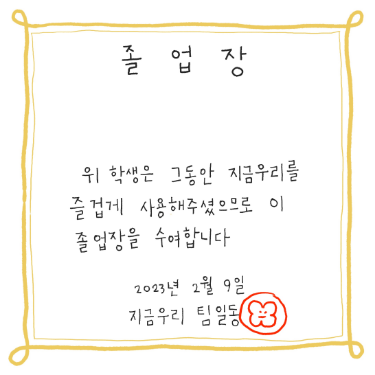 졸 업 장
위 학생은 그동안 지금우리를
즐겁게 사용해주셨으므로 이
졸업장을 수여합니다
2023년 2월 9일
지금우리 팀일동